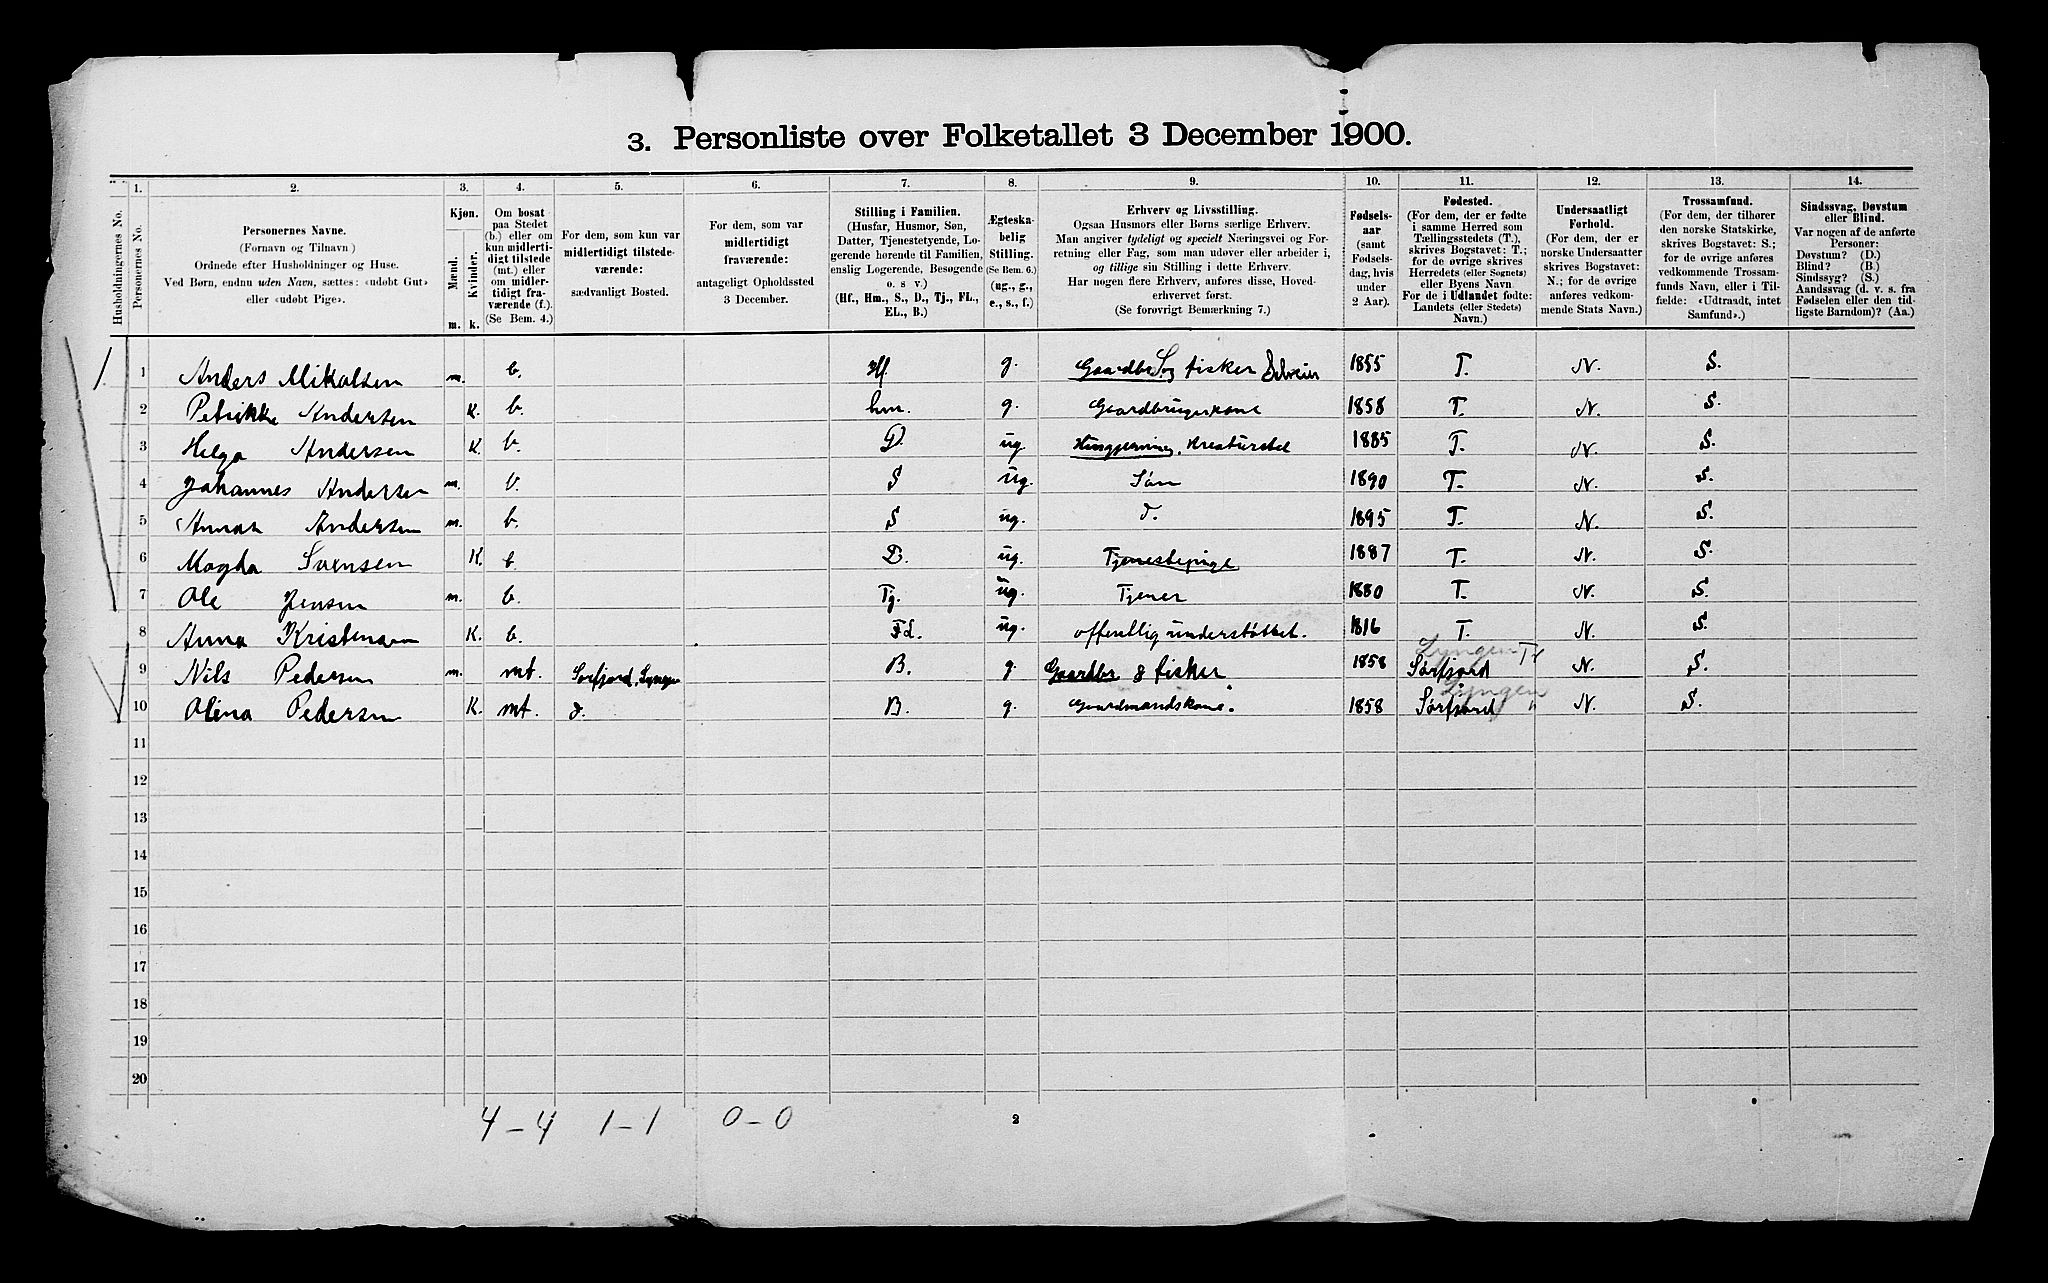 3. Personliste over Folketallet 3 December 1900.
1. 2. 3. 4. 5. 6. 7. 8. 9. 10. 11. 12. 13. 14.
Husholdningernes No.
Personernes No.
Personernes Navne.
(Fornavn og Tilnavn)
Ordnede efter Husholdninger og Huse.
Ved Børn, endnu uden Navn, sættes: «udøbt Gut»
eller «udøbt Pige».
Kjøn.
Mænd.
Kvinder.
m. k.
Om bosat
paa Stedet
(b.) eller om
kun midlerti-
digt tilstede
(mt.) eller
om midler-
tidigt fra-
værende (f.).
(Se Bem. 4.)
For dem, som kun var
midlertidigt tilstede-
værende:
sædvanligt Bosted.
For dem, som var
midlertidigt
fraværende:
antageligt Opholdssted
3 December.
Stilling i Familien.
(Husfar, Husmor, Søn,
Datter, Tjenestetyende, Lo-
gerende hørende til Familien,
enslig Logerende, Besøgende
o. s v.)
(Hf., Hm., S., D., Tj., FL.,
EL., B.)
Ægteska-
belig
Stilling.
(Se Bem. 6.)
(ug., g.,
e., s., f.)
Erhverv og Livsstilling.
Ogsaa Husmors eller Børns særlige Erhverv.
Man angiver tydeligt og specielt Næringsvei og For-
retning eller Fag, som man udøver eller arbeider i,
og tillige sin Stilling i dette Erhverv.
Har nogen flere Erhverv, anføres disse, Hoved-
erhvervet først.
(Se forøvrigt Bemærkning 7.)
Fødsels-
aar
(samt
Fødsels-
dag, hvis
under
2 Aar).
Fødested.
(For dem, der er fødte
i samme Herred som
Tællingsstedets (T.),
skrives Bogstavet: T.;
for de øvrige skrives
Herredets (eller Sognets)
eller Byens Navn.
For de i Udlandet fødte:
Landets (eller Stedets)
Navn.)
Undersaatligt
Forhold.
(For dem, der er
norske Undersaatter
skrives Bogstavet:
N.; for de øvrige
anføres vedkom-
mende Stats Navn.)
Trossamfund.
(For dem, der tilhører
den norske Statskirke,
skrives Bogstavet: S.;
for de øvrige anføres
vedkommende Trossam-
funds Navn, eller i Til-
fælde: «Udtraadt, intet
Samfund».)
Sindssvag, Døvstum
eller Blind.
Var nogen af de anførte
Personer:
Døvstum? (D.)
Blind? (B.)
Sindssyg? (S.)
Aandssvag (d. v. s. fra
Fødselen eller den tid-
ligste Barndom)? (Aa.)
1. 1 Anders Mikalsen m. b. Hf g. Gaardbr. og fisker Selveier 1855 T. N. S.
2 Petrikke Andersen K. b. hm. g. Gaardbrugerkone 1858 T. N. S.
3 Helga Andersen K. b. D. ug Kreaturstel 1885 T. N. S.
4 Johannes Andersen m. b. S ug. Søn 1890 T. N. S.
5 Andersen m. b. S ug. d. 1895 T. N. S.
6 Magda Svensen K. b. D. ug. Tjenestepige 1887 T. N. S.
7 Ole Jensen m. b. Tj. ug. Tjener 1880 T. N. S.
8 Anna Kristensen K. b. Fl. ug. offentlig understøttet. 1816 T. N. S.
9 Nils Pedersen m. mt. Sørfjord, Lyngen B. g. Gaardbr & fisker 1858 Sørfjord Lyngen N. S.
10 Olina Pedersen K. mt. d. B. g. Gaardmandskone. 1858 Sørfjord Lyngen " N. S.
11
12
13
14
15
16
17
18
19
20
4 – 4 1 – 1 0 – 0
2